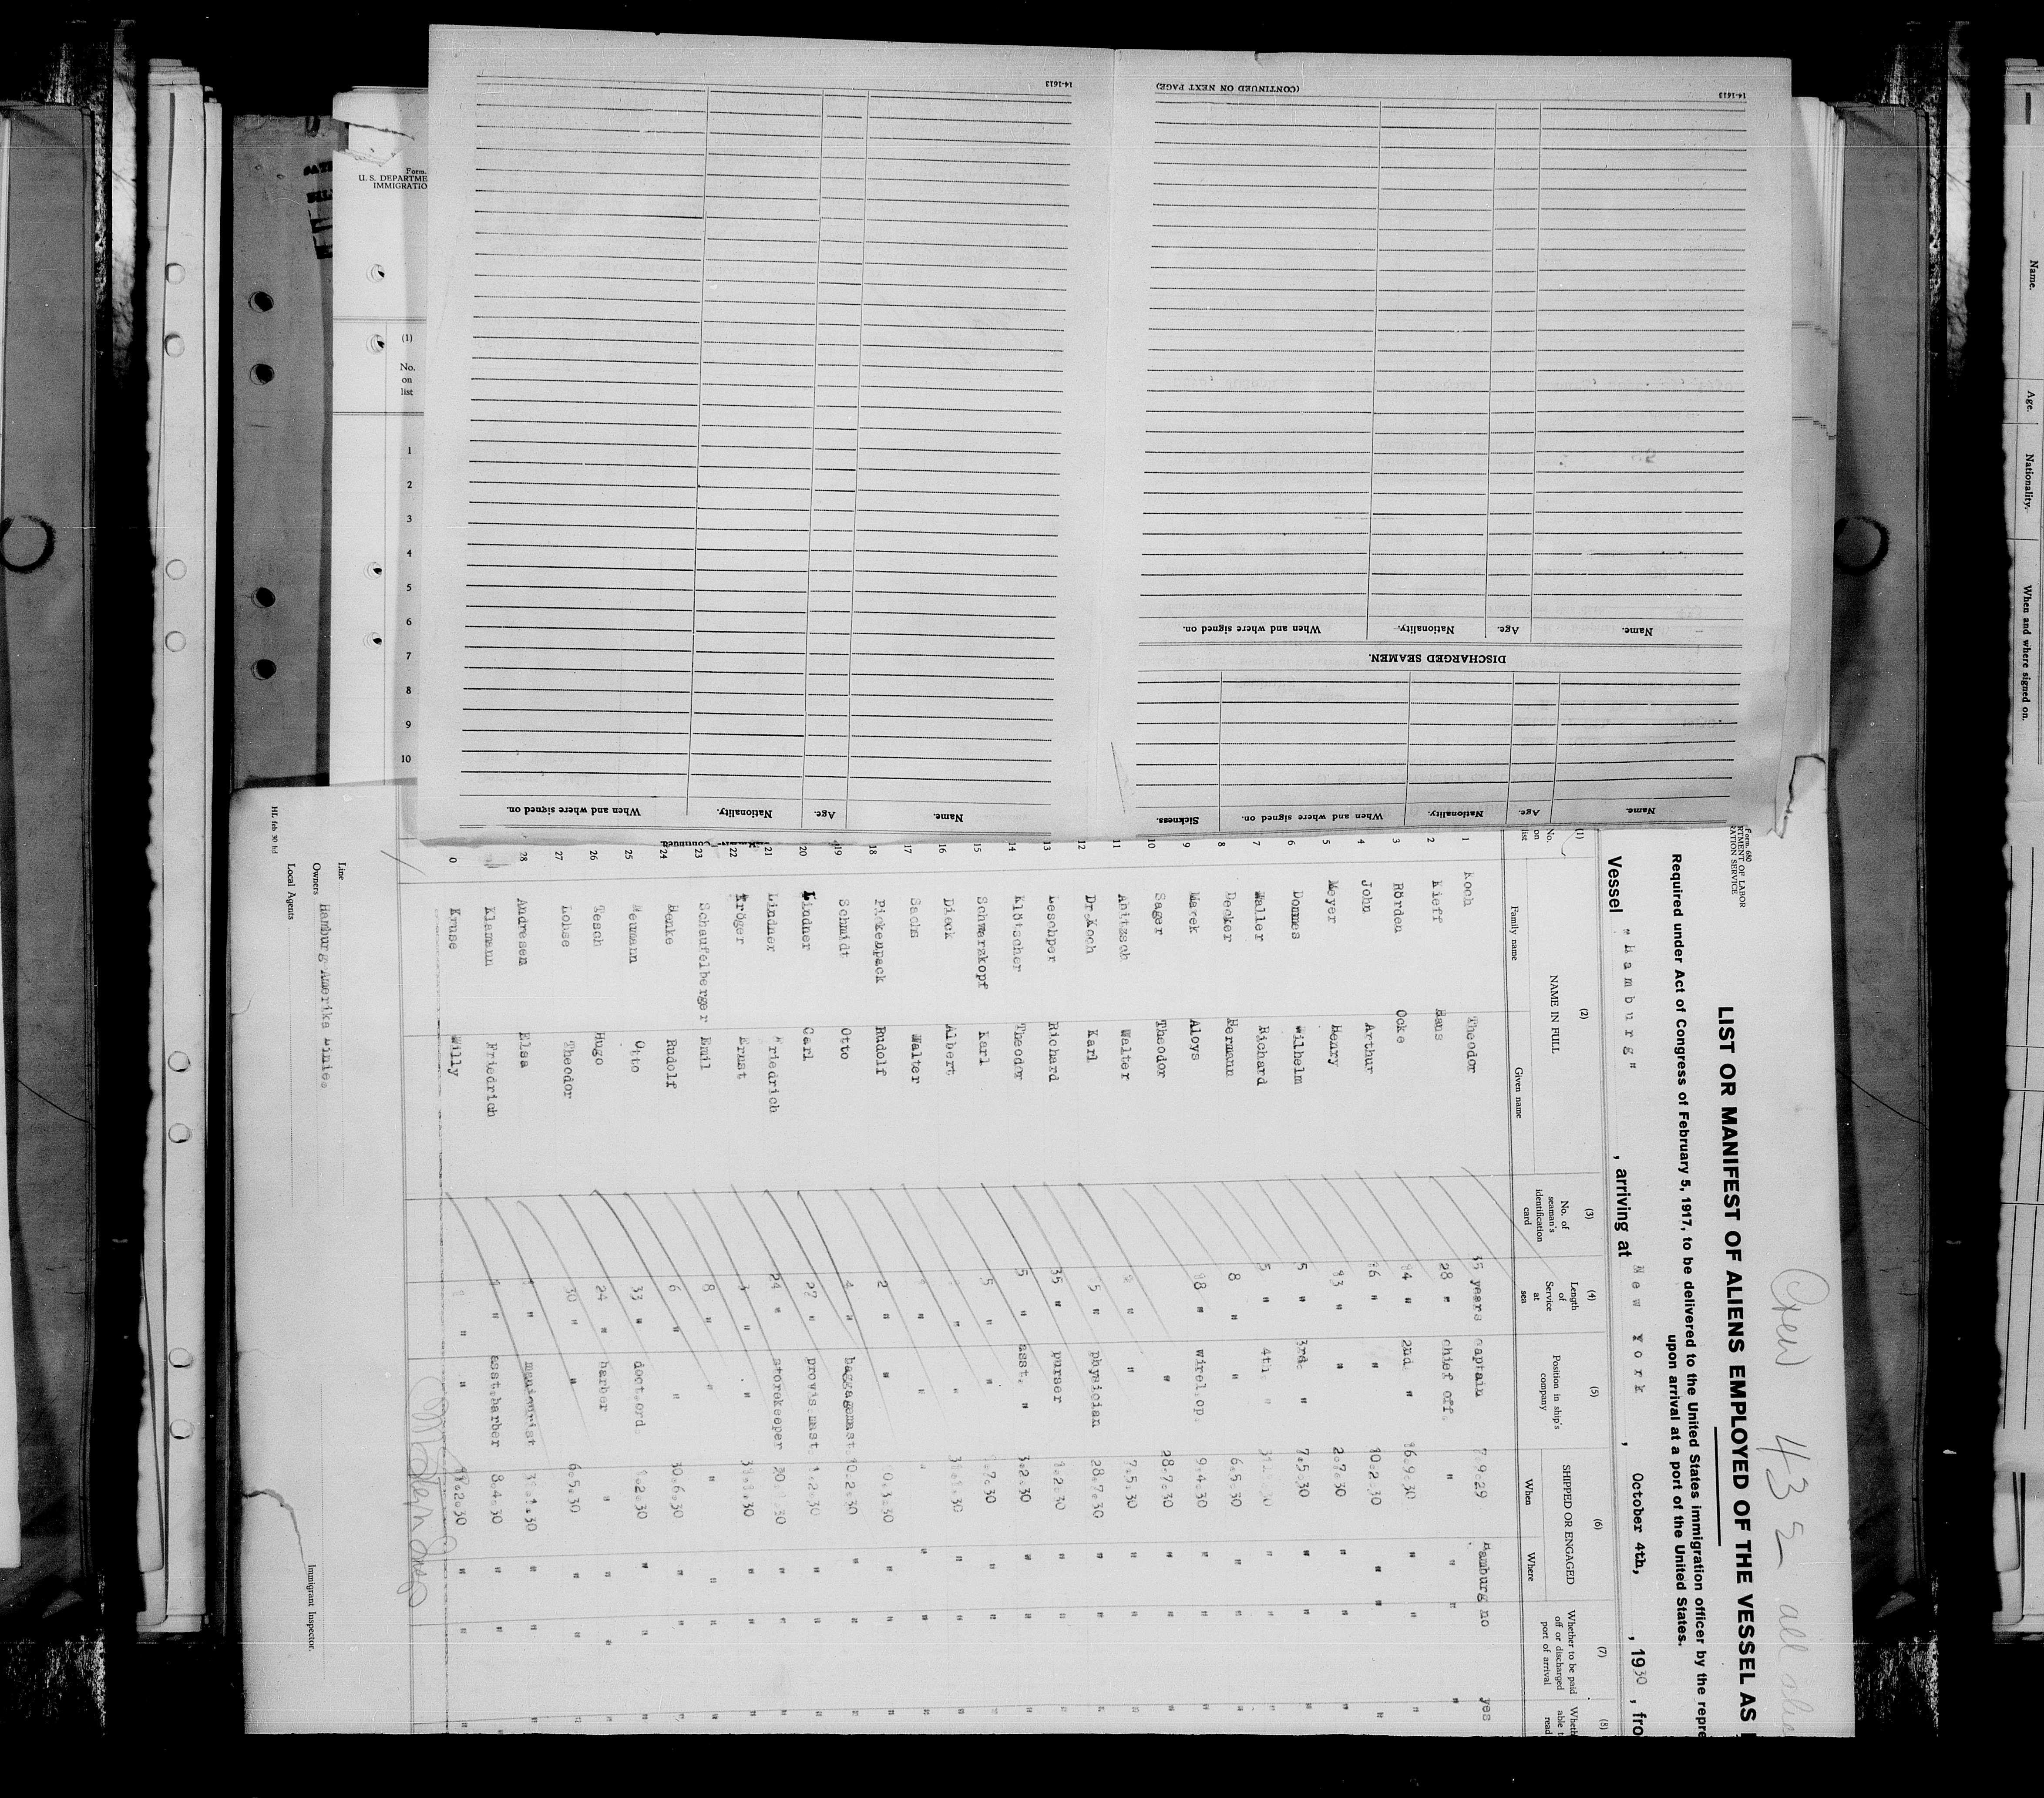 Crew 432 all
Form 680
U. S. DEPARTMENT OF LABOR
IMMIGRATION SERVICE
LIST OR MANIFEST OF ALIENS EMPLOYED OF THE VESSEL AS
Required under Act of Congress of February 5, 1917, to be delivered to the United States immigration officer by the repre
upon arrival at a port of the United States.
Vessel "Hamburg", arriving at New York, October 4th, , 1930 , fro
(1) (2) (3) (4) (5) (6) (7) (8)
No. on list
NAME IN FULL
Family name Given name
No. of seaman's identification card
Length of Service at sea
Position in ship's company
SHIPPED OR ENGAGED
When Where
Whether to be paid off or discharged port of arrival
1 Koch Theodor 35 years captain 7.9.29 Hamburg no yes
2 Kieff Hans 28 " chief off. " " " "
3 Rörden Ocke 14 " 2nd. " 16.9.30 " " "
4 John Arthur 16 " " 10.2.30 " " "
5 Meyer Henry 13 " " 2.7.30 " " "
6 Dommes Wilhelm 5 " 3rd. " 7.5.30 " " "
7 Waller Richard 5 " 4th. " " " "
8 Decker Hermann 8 " " 6.5.30 " " "
9 Marek Aloys 18 " wirel.op. 9.4.30 " " "
10 Sager Theodor " 28.7.30 " " "
11 Abitzsch Walter " " 7.5.30 " " "
12 Dr.Koch Karl 5 " physician 28.7.30 " " "
13 Leschper Richard 35 " purser 1.2.30 " " "
14 Klötscher Theodor 5 " asst. " 3.2.30 " " "
15 Schwarzkopf Karl 5 " " 1.7.30 " " "
16 Dieck Albert " " 31.1.30 " " "
17 Sachs Walter " " " " "
18 Pickenpack Rudolf 2 " " " " "
19 Schmidt Otto 4 " baggagemast. 10.2.30 " " "
20 Lindner Carl 27 " provis.mast. 1.2.30 " " "
21 Lindner Friedrich 24 " storekeeper " " "
22 Kröger Ernst 3 " " 31.1.30 " " "
23 Schauffelberger Emil 8 " " " " " "
24 Henke Rudolf 6 " " 30.6.30 " " "
25 Neumann Otto 33 " doct.ord. 1.2.30 " " "
26 Tesch Hugo 24 " barber " " " "
27 Lohse Theodor 30 " " 6.5.30 " " "
28 Andresen Elsa " manicurist 31.1.30 " " "
Klamann Friedrich 1 " asst.barber 8.4.30 " " "
Kruse Willy " " 18.2.30 " " "
Line
Owners Hamburg-Amerika Linie.
Local Agents
Immigrant Inspector.
HL feb 30 hd
(CONTINUED ON NEXT PAGE)
14-1613
14-1613
DISCHARGED SEAMEN.
Name. Age. Nationality. When and where signed on.
Name. Age. Nationality. When and where signed on. Sickness.
Name. Age. Nationality. When and where signed on.
Form
U. S. DEPARTME
IMMIGRATIO
(1)
No.
on
list
1
2
3
4
5
6
7
8
9
10
Name. Age. Nationality. When and where signed on.